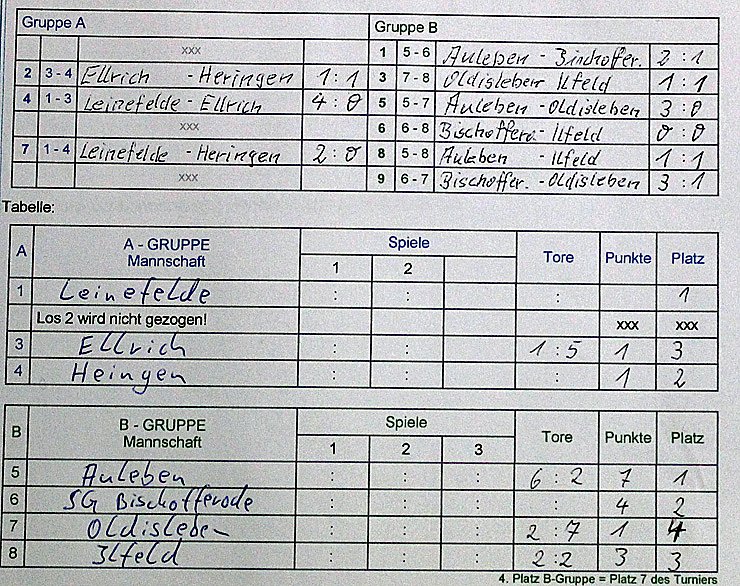 Gruppe A
xxx
2 3-4 Ellrich - Heringen 1:1
4 1-3 Leinefelde - Ellrich 4:0
xxx
7 1-4 Leinefelde - Heringen 2:0
xxx
Gruppe B
1 5-6 Auleben - Bischoffer. 2:1
3 7-8 Oldisleben - Ilfeld 1:1
5 5-7 Auleben - Oldisleben 3:0
6 6-8 Bischoffero. - Ilfeld 0:0
8 5-8 Auleben - Ilfeld 1:1
9 6-7 Bischoffer. - Oldisleben 3:1
Tabelle:
A A - GRUPPE Mannschaft Spiele 1 2 Tore Punkte Platz
1 Leinefelde : : : 1
Los 2 wird nicht gezogen! xxx xxx
3 Ellrich : : 1:5 1 3
4 Heingen : : : 1 2
B B - GRUPPE Mannschaft Spiele 1 2 3 Tore Punkte Platz
5 Auleben : : : 6:2 7 1
6 SG Bischofferode : : : : 4 2
7 Oldisleben : : : 2:7 1 4
8 Ilfeld : : : 2:2 3 3
4. Platz B-Gruppe = Platz 7 des Turniers